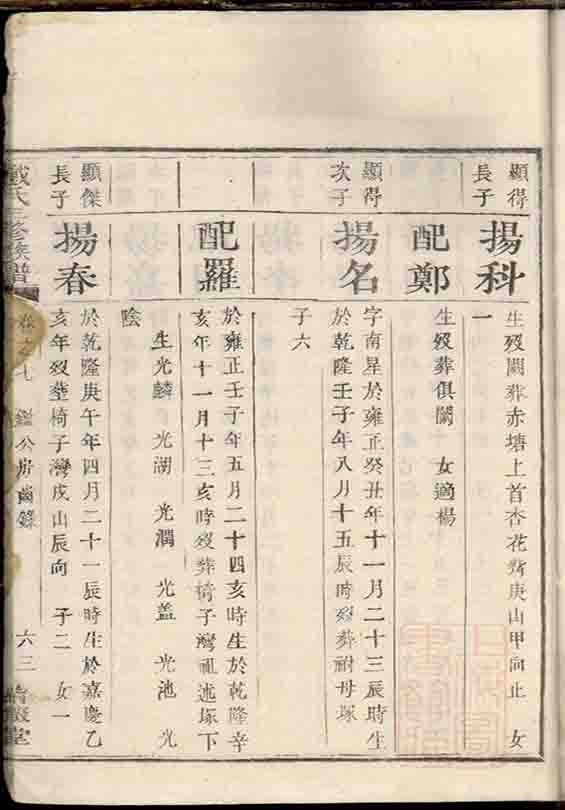 顯得
長子
揚科
生歿闕葬赤塘上首杏花嶺庚山甲向止 女
一
配鄭
生歿葬俱闕 女適楊
顯得
次子
揚名
字南星於雍正癸丑年十一月二十三辰時生
於乾隆壬子年八月十五辰時歿葬祔母塚
子六
配羅
於雍正壬子年五月二十四亥時生於乾隆辛
亥年十一月十三亥時歿葬椅子灣祖述塚下
生光麟 光湖 光澗 光盖 光池 光
陰
顯傑
長子
揚春
於乾隆庚午年四月二十一辰時生於嘉慶乙
亥年歿塟椅子灣戌山辰向 子二 女一
戴氏三修族譜
卷之九 鑑公房齒錄
六三